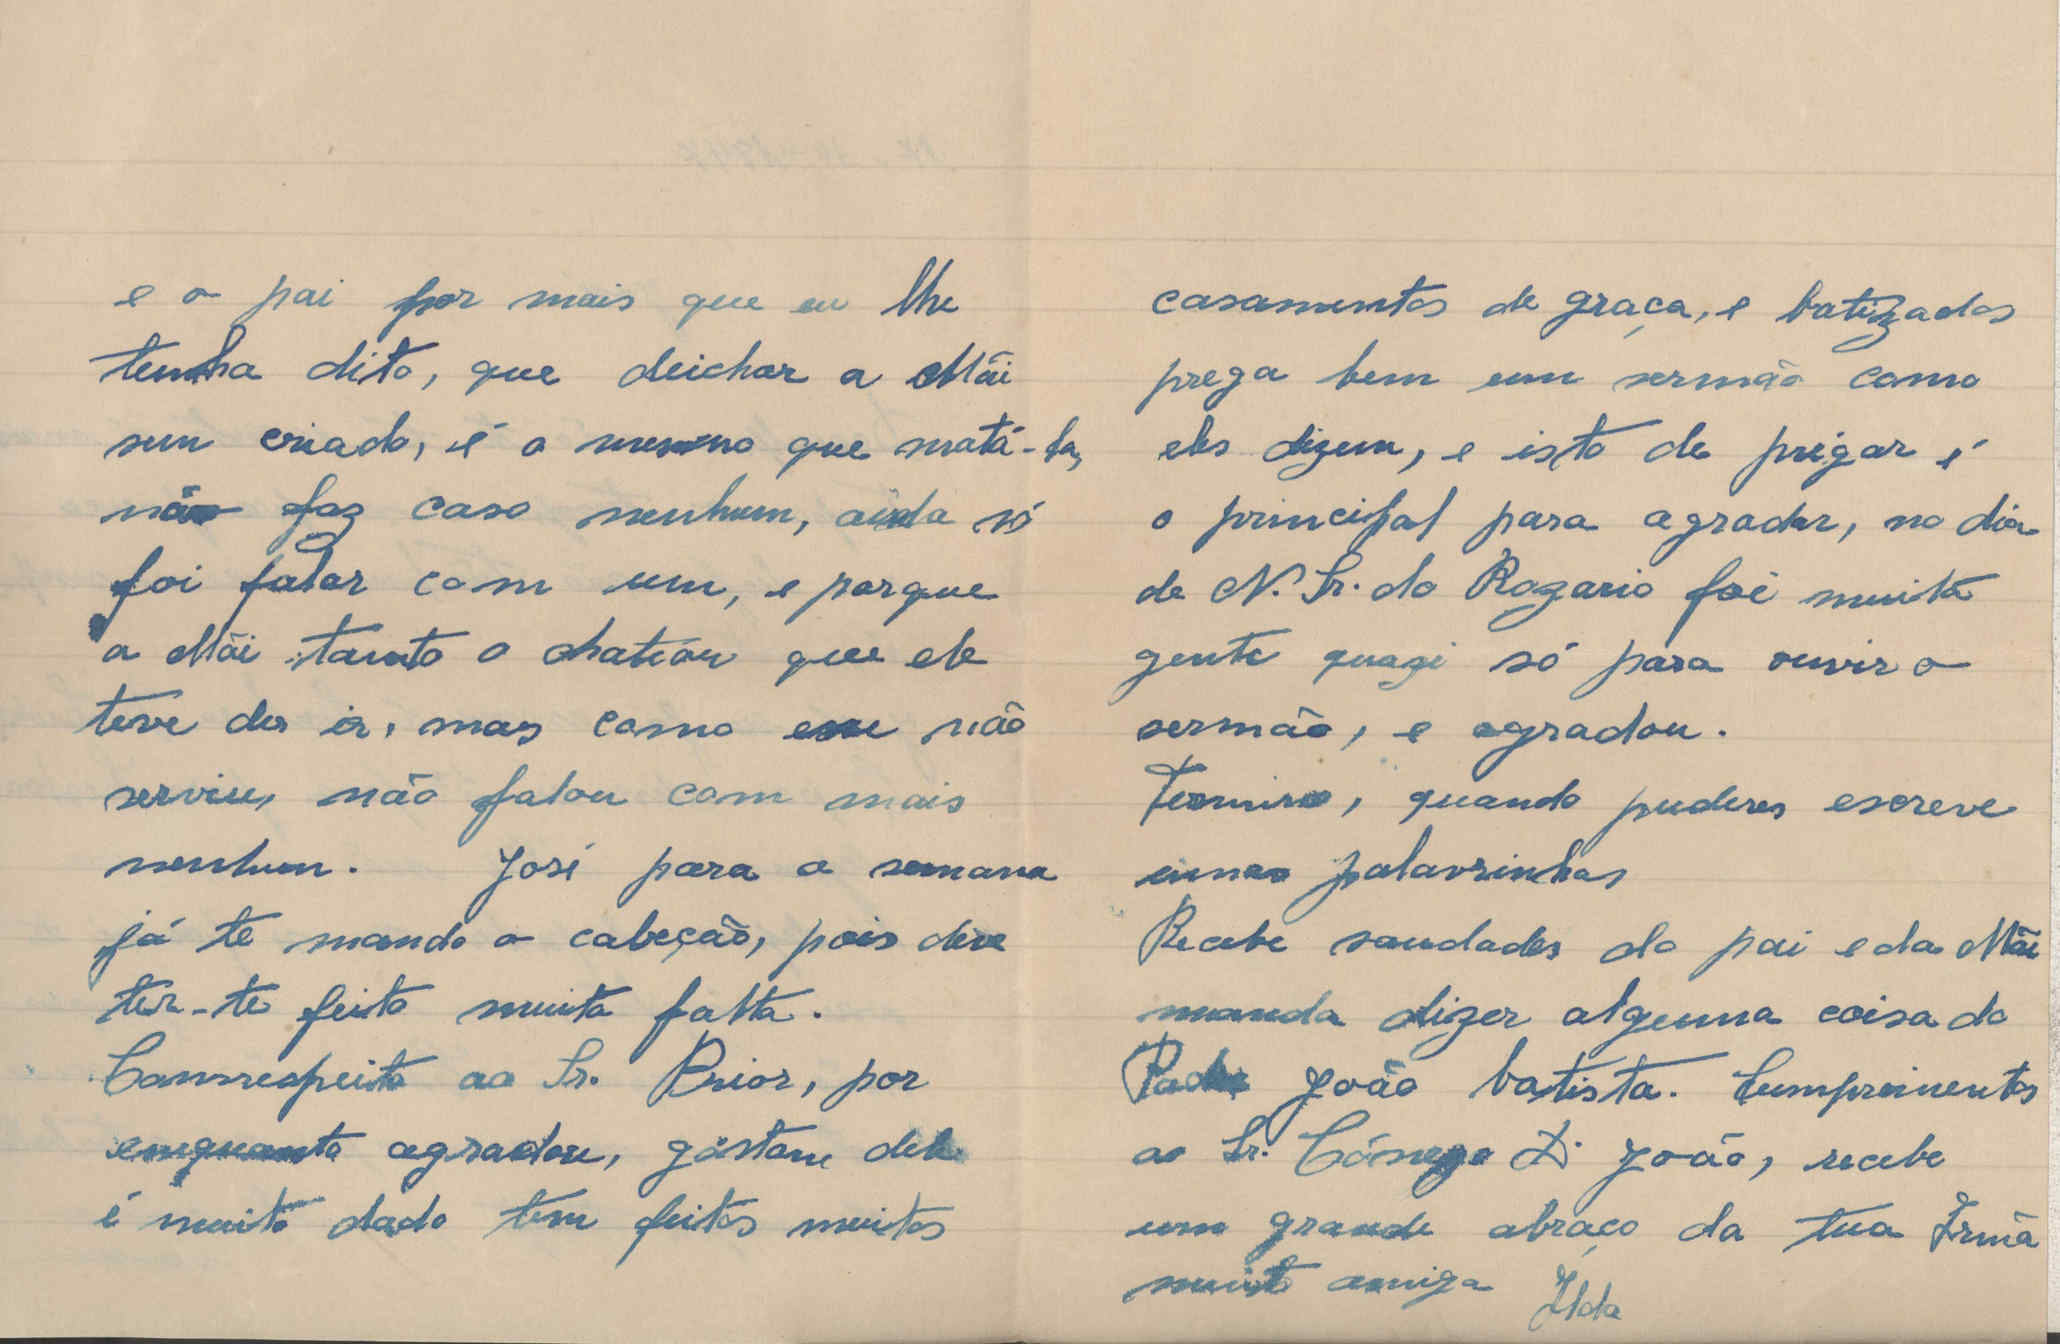 e o pai por mais que eu lhe
tenha dito, que deichar a Mãi
sem criado, é o mesmo que matá-la,
não faz caso nenhum, aida só
foi falar com um, e porque
a Mãi tanto o chateou que ele
teve de ir, mas como esse não
serviu, não falou com mais
nenhum. José para a semana
já te mando o cabeção, pois deve
ter-te feito muita falta.
Comrespeito ao Sr. Prior, por
emquanto agradou, gostam dele
é muito dado tem feitos muitos
casamentos de graça, e batizados
prega bem um sermão como
eles dizem, e isto de prégar é
o principal para agradar, no dia
de N. Sr. do Rozario foi muita
gente quazi só para ouvir o
sermão, e agradou.
Termino, quando puderes escreve
umas palavrinhas
Recebe saudades do pai e da Mãi
manda dizer alguma coisa do
Padre João batista. Cumprimentos
ao Sr. Cónego D. João, recebe
um grande abraço da tua Irmã
muito amiga Ilda